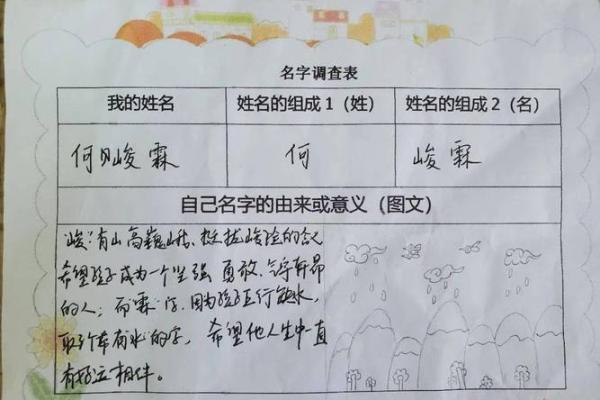 名字调查表
我的姓名 姓名的组成1（姓） 姓名的组成2（名）
何峻霖 何 峻霖
自己名字的由来或意义（图文）
峻：有山高巍峨、挺拔峻险的含义
希望孩子成为一个坚强 勇敢、气宇轩昂
的人；而霖字，因为孩子五行缺水，
取了个带有水的字， 希望他人生中一直
有好运相伴。